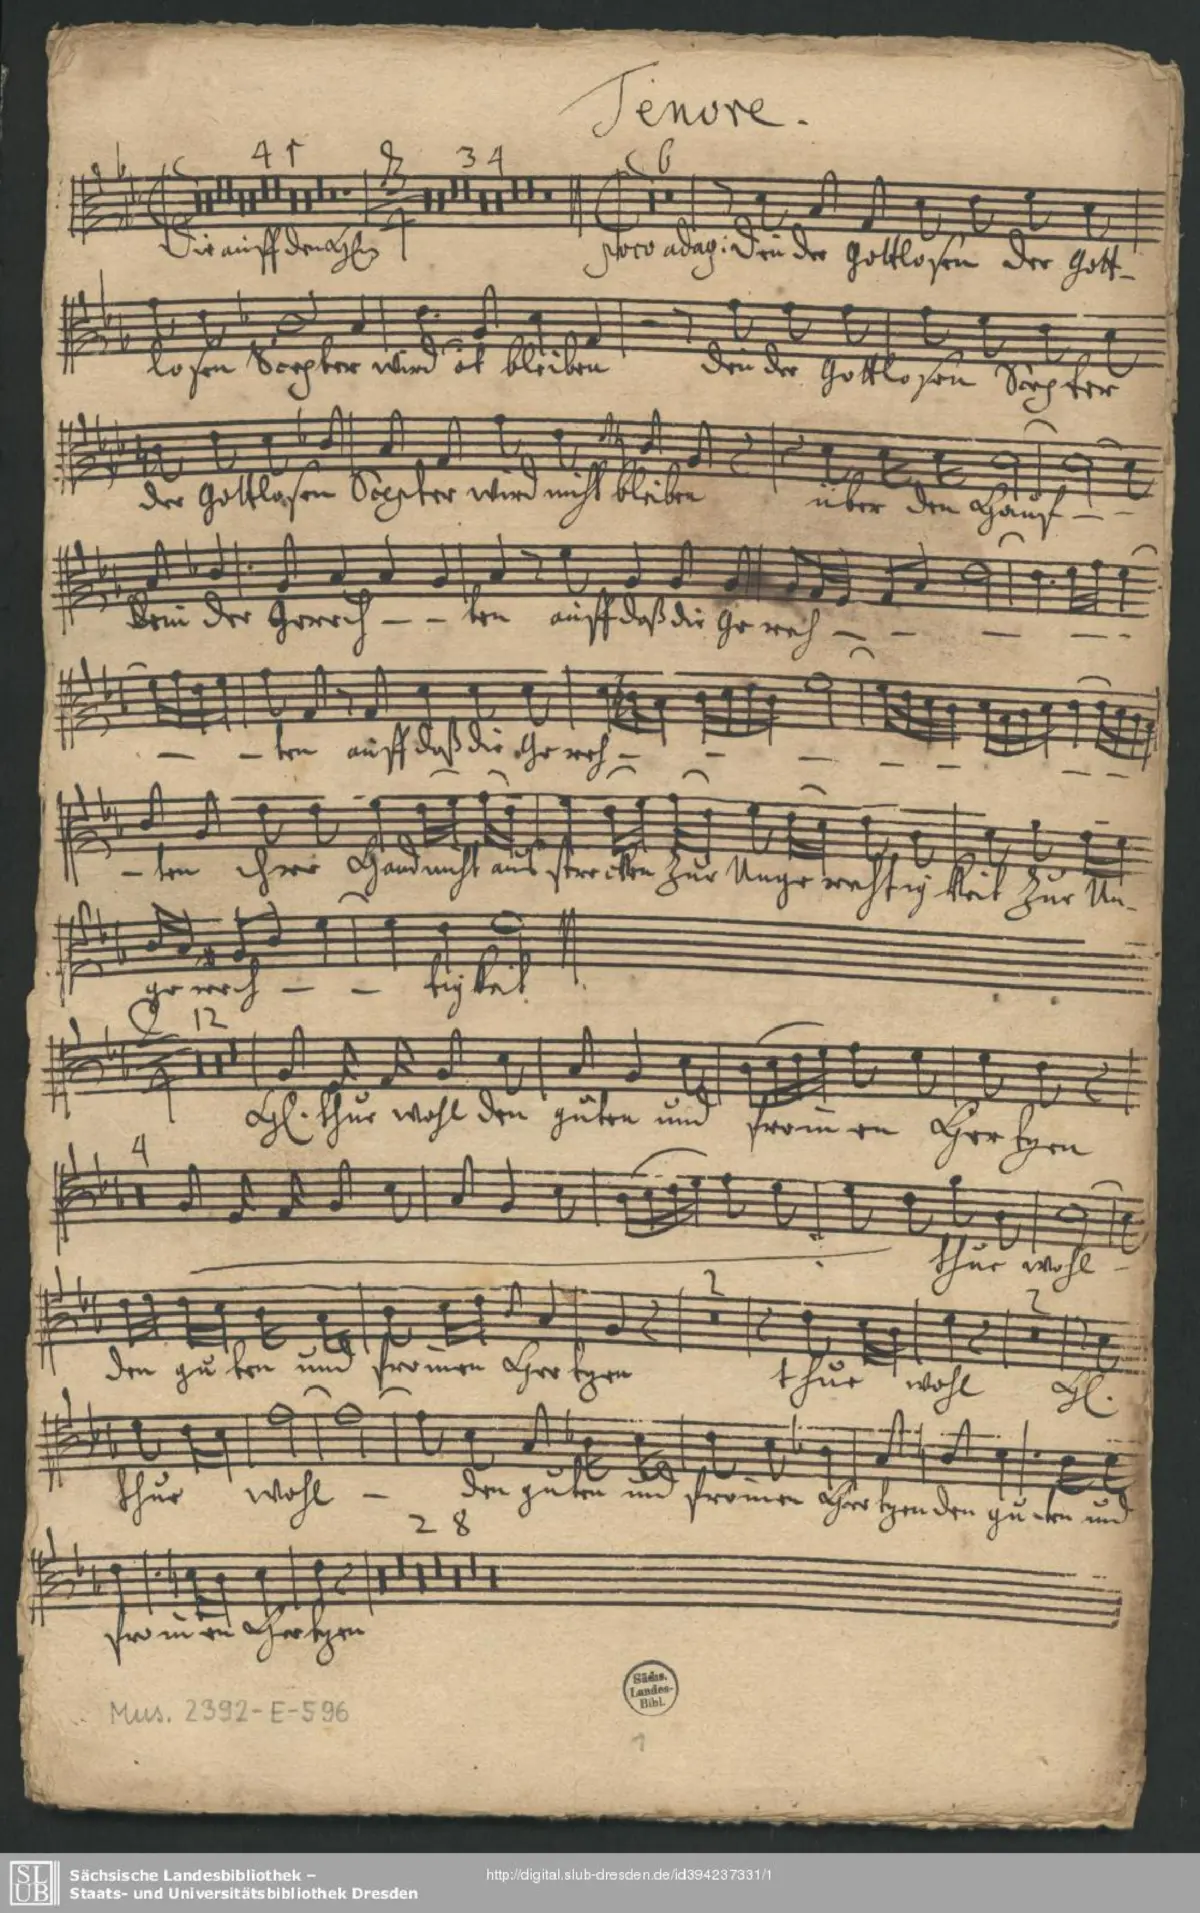 Tenore.
4 1 3 4 6
Die auff den HErrn poco adag: Den der Gottlosen der Gott-
losen Scepter wird nit bleiben den der Gottlosen Scepter
der Gottlosen Scepter wird nicht bleiben über den Häuf - -
lein der Gerech - - ten auff daß die Gerech - - - - -
- - ten auff daß die Gerech - - - - - -
- ten ihre Hand nicht ausstrecken zur Ungerechtigkeit zur Un-
gerech - - tigkeit
12
HErr thue wohl den guten und fromen Hertzen
4
thue wohl -
2 2
den guten und fromen Hertzen thue wohl HErr
thue wohl - den guten und fromen Hertzen den guten und
2 8
fromen Hertzen
Mus. 2392-E-596
Sächs.
Landes-
Bibl.
1
SLUB
Sächsische Landesbibliothek –
Staats- und Universitätsbibliothek Dresden
http://digital.slub-dresden.de/id394237331/1